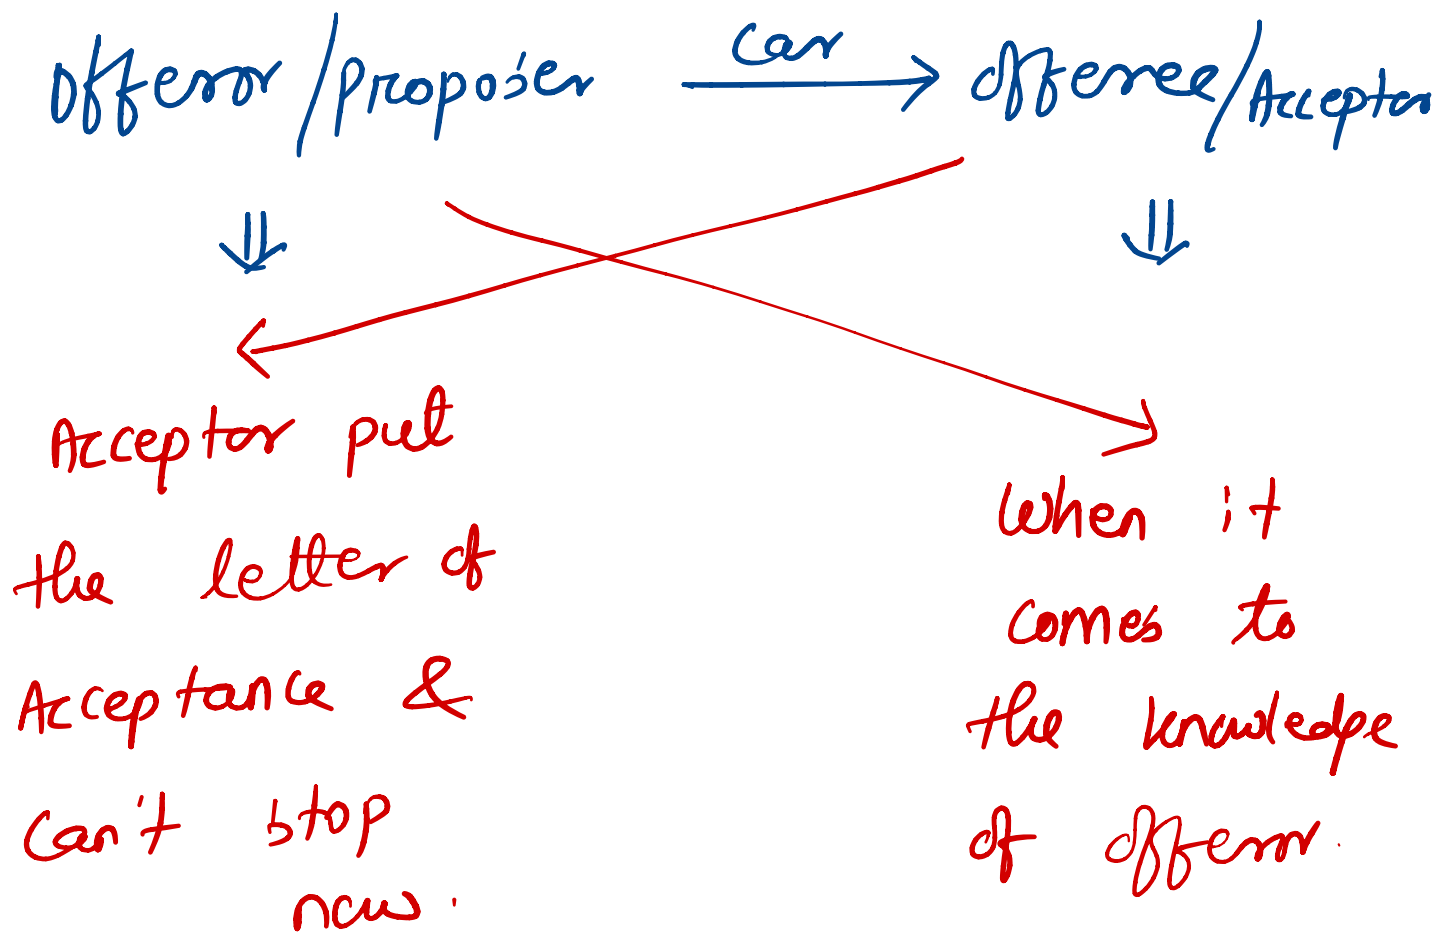 Offeror/Proposer Car Offeree/Acceptor
Acceptor put
the letter of
Acceptance &
can't stop
now.
When it
comes to
the knowledge
of offeror.